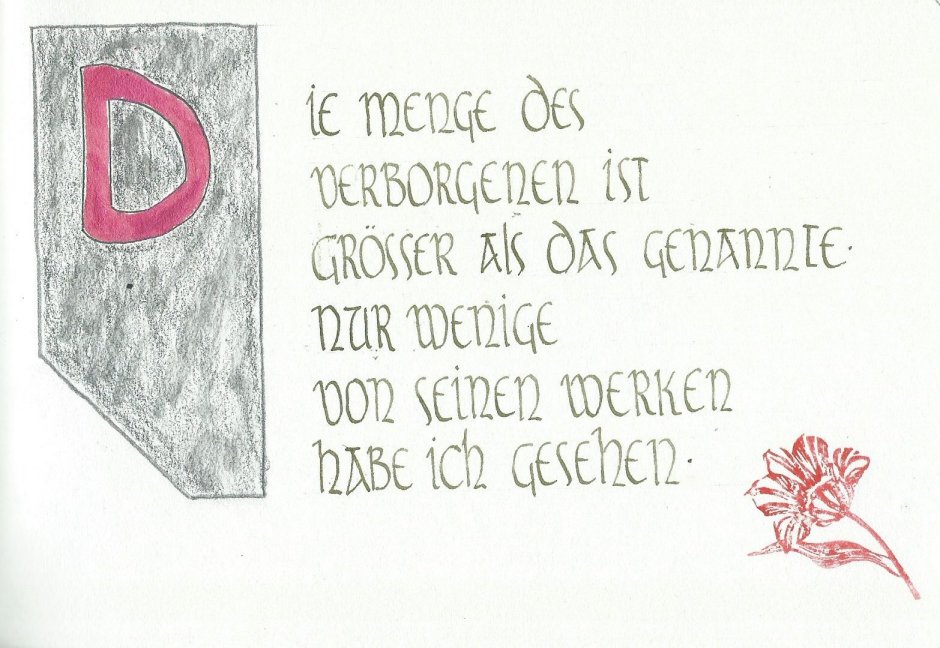 DIE MENGE DES
VERBORGENEN IST
GRÖSSER ALS DAS GENANNTE.
NUR WENIGE
VON SEINEN WERKEN
HABE ICH GESEHEN.